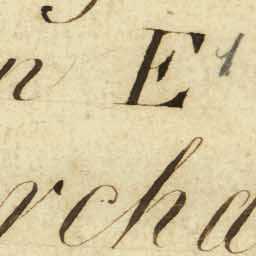 n E 1
rcha